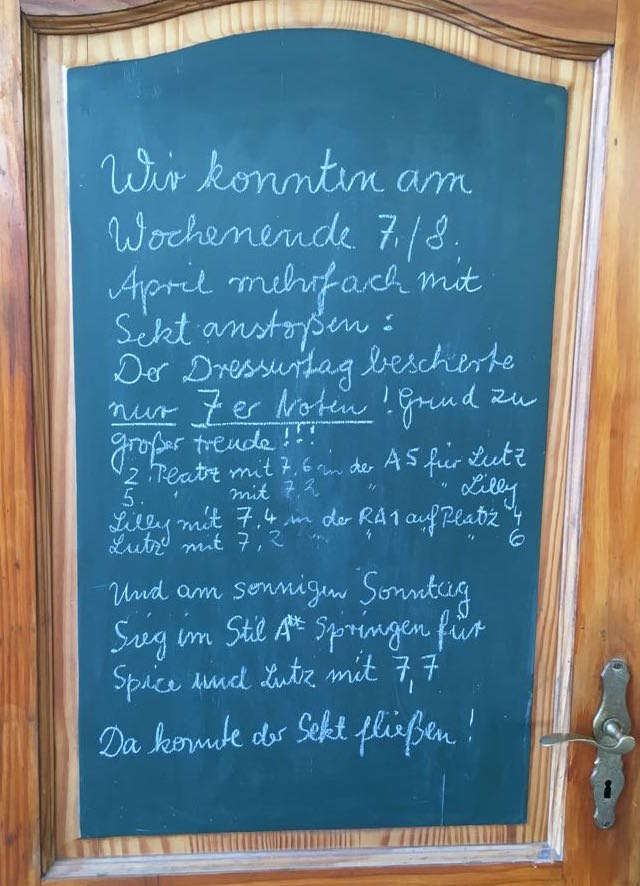 Wir konnten am
Wochenende 7./8.
April mehrfach mit
Sekt anstoßen :
Der Dressurtag bescherte
nur 7er Noten ! Grund zu
großer Freude !!!
2. Platz mit 7,6 in der A5 für Lutz
5. " mit 7,2 " " Lilly
Lilly mit 7,4 in der RA1 auf Platz 4
Lutz mit 7,2 " " " 6
Und am sonnigen Sonntag
Sieg im Stil A**- Springen für
Spice und Lutz mit 7,7
Da konnte der Sekt fließen !